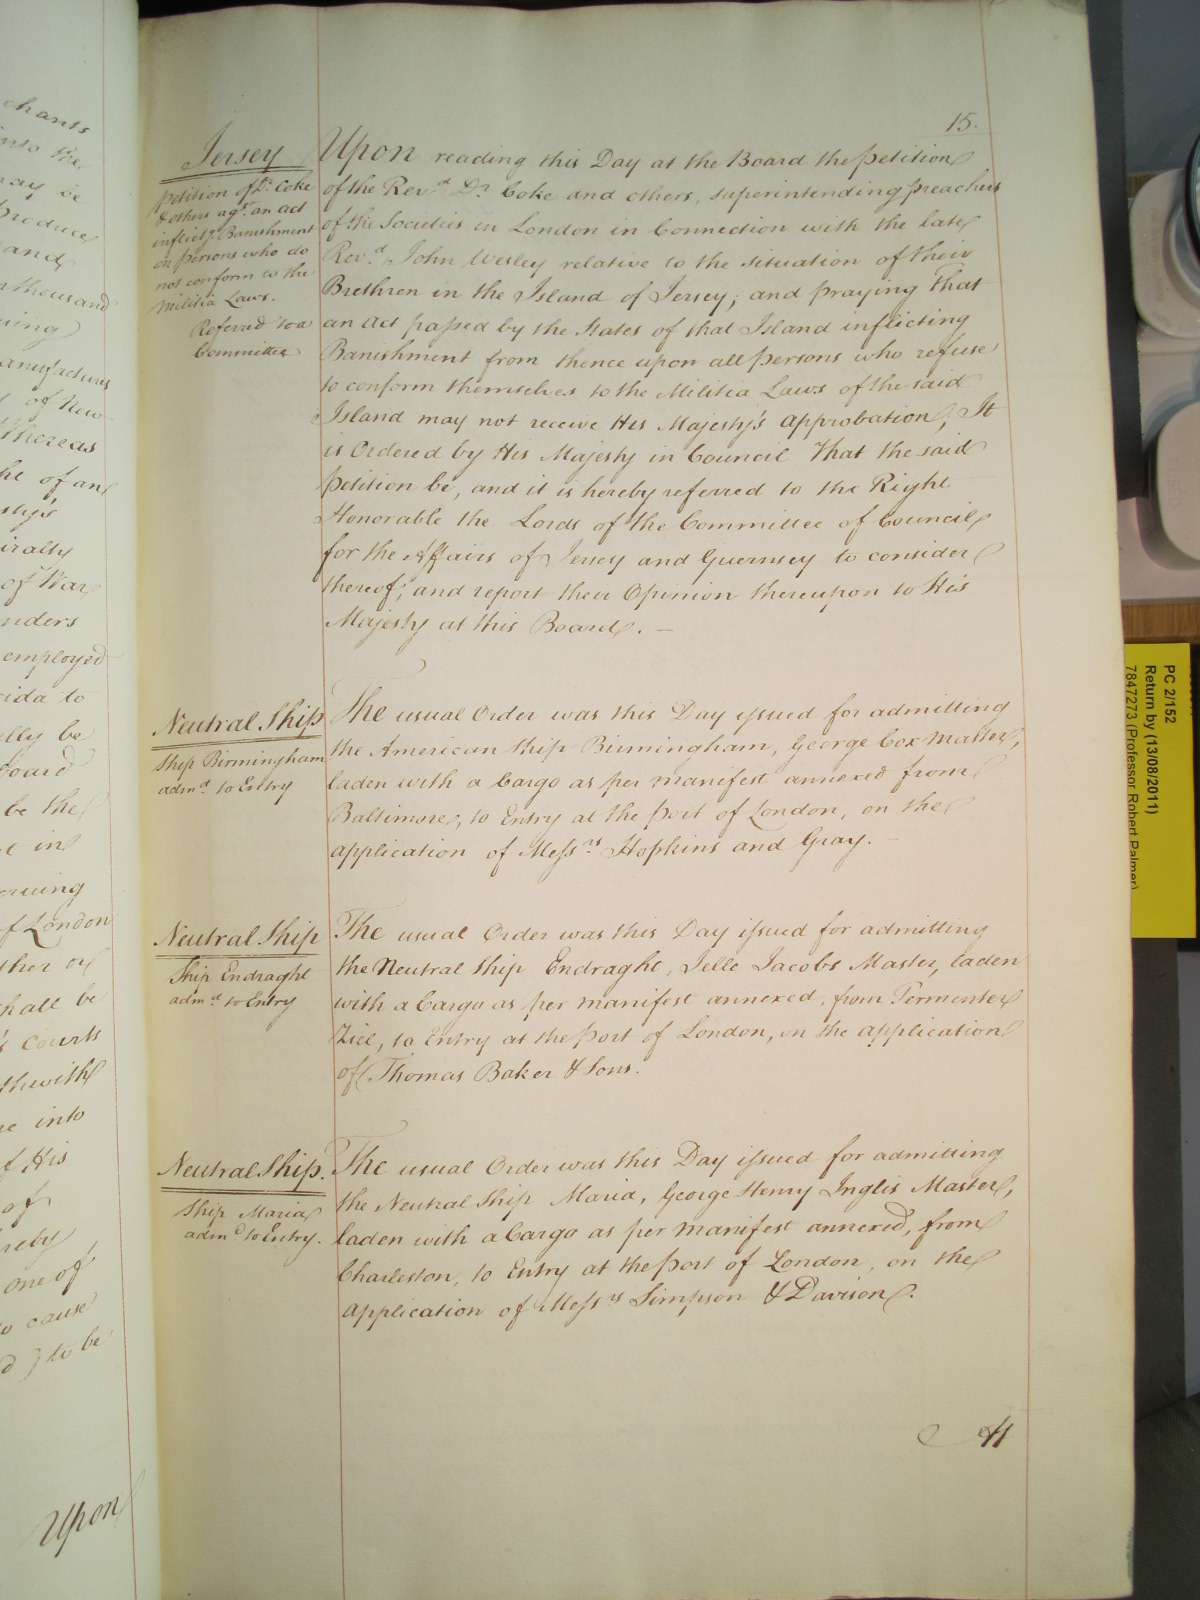 chants
into the
may be
produce
and
thousand
manufactures
of New
Whereas
of an
of War
employed
to
be
be the
in
of London
ther or
shall be
Courts
into
of His
of
one of
cause
to be
Upon
15.
Jersey
petition of Dr. Coke
& others agt. an act
inflictg. Banishment
on persons who do
not conform to the
Militia Laws.
Referred to a
Committee
Upon reading this Day at the Board the petition
of the Revd. Dr. Coke and others, superintending preachers
of the Societies in London in Connection with the late
Revd. John Wesley relative to the situation of their
Brethren in the Island of Jersey; and praying That
an Act passed by the States of that Island inflicting
Banishment from thence upon all persons who refuse
to conform themselves to the Militia Laws of the said
Island may not receive His Majesty's approbation; It
is Ordered by His Majesty in Council That the said
petition be, and it is hereby referred to the Right
Honorable the Lords of the Committee of Council
for the Affairs of Jersey and Guernsey to consider
thereof, and report their Opinion thereupon to His
Majesty at this Board. —
Neutral Ship
Ship Birmingham
admd. to Entry
The usual Order was this Day issued for admitting
the American Ship Birmingham, George Cox Master,
laden with a Cargo as per manifest annexed from
Baltimore, to Entry at the port of London, on the
application of Messrs. Hopkins and Gray. —
Neutral Ship
Ship Endraght
admd. to Entry
The usual Order was this Day issued for admitting
the Neutral Ship Endraght, Jelle Jacobs Master, laden
with a Cargo as per manifest annexed, from Termenter
Ziel, to Entry at the port of London, on the application
of Thomas Baker & Sons.
Neutral Ship.
Ship Maria
admd. to Entry.
The usual Order was this Day issued for admitting
the Neutral Ship Maria, George Henry Inglis Master,
laden with a Cargo as per manifest annexed, from
Charleston, to Entry at the port of London, on the
application of Messrs Simpson & Davison.
At
PC 2/152
Return by (13/08/2011)
7847273 (Professor Robert Palmer)